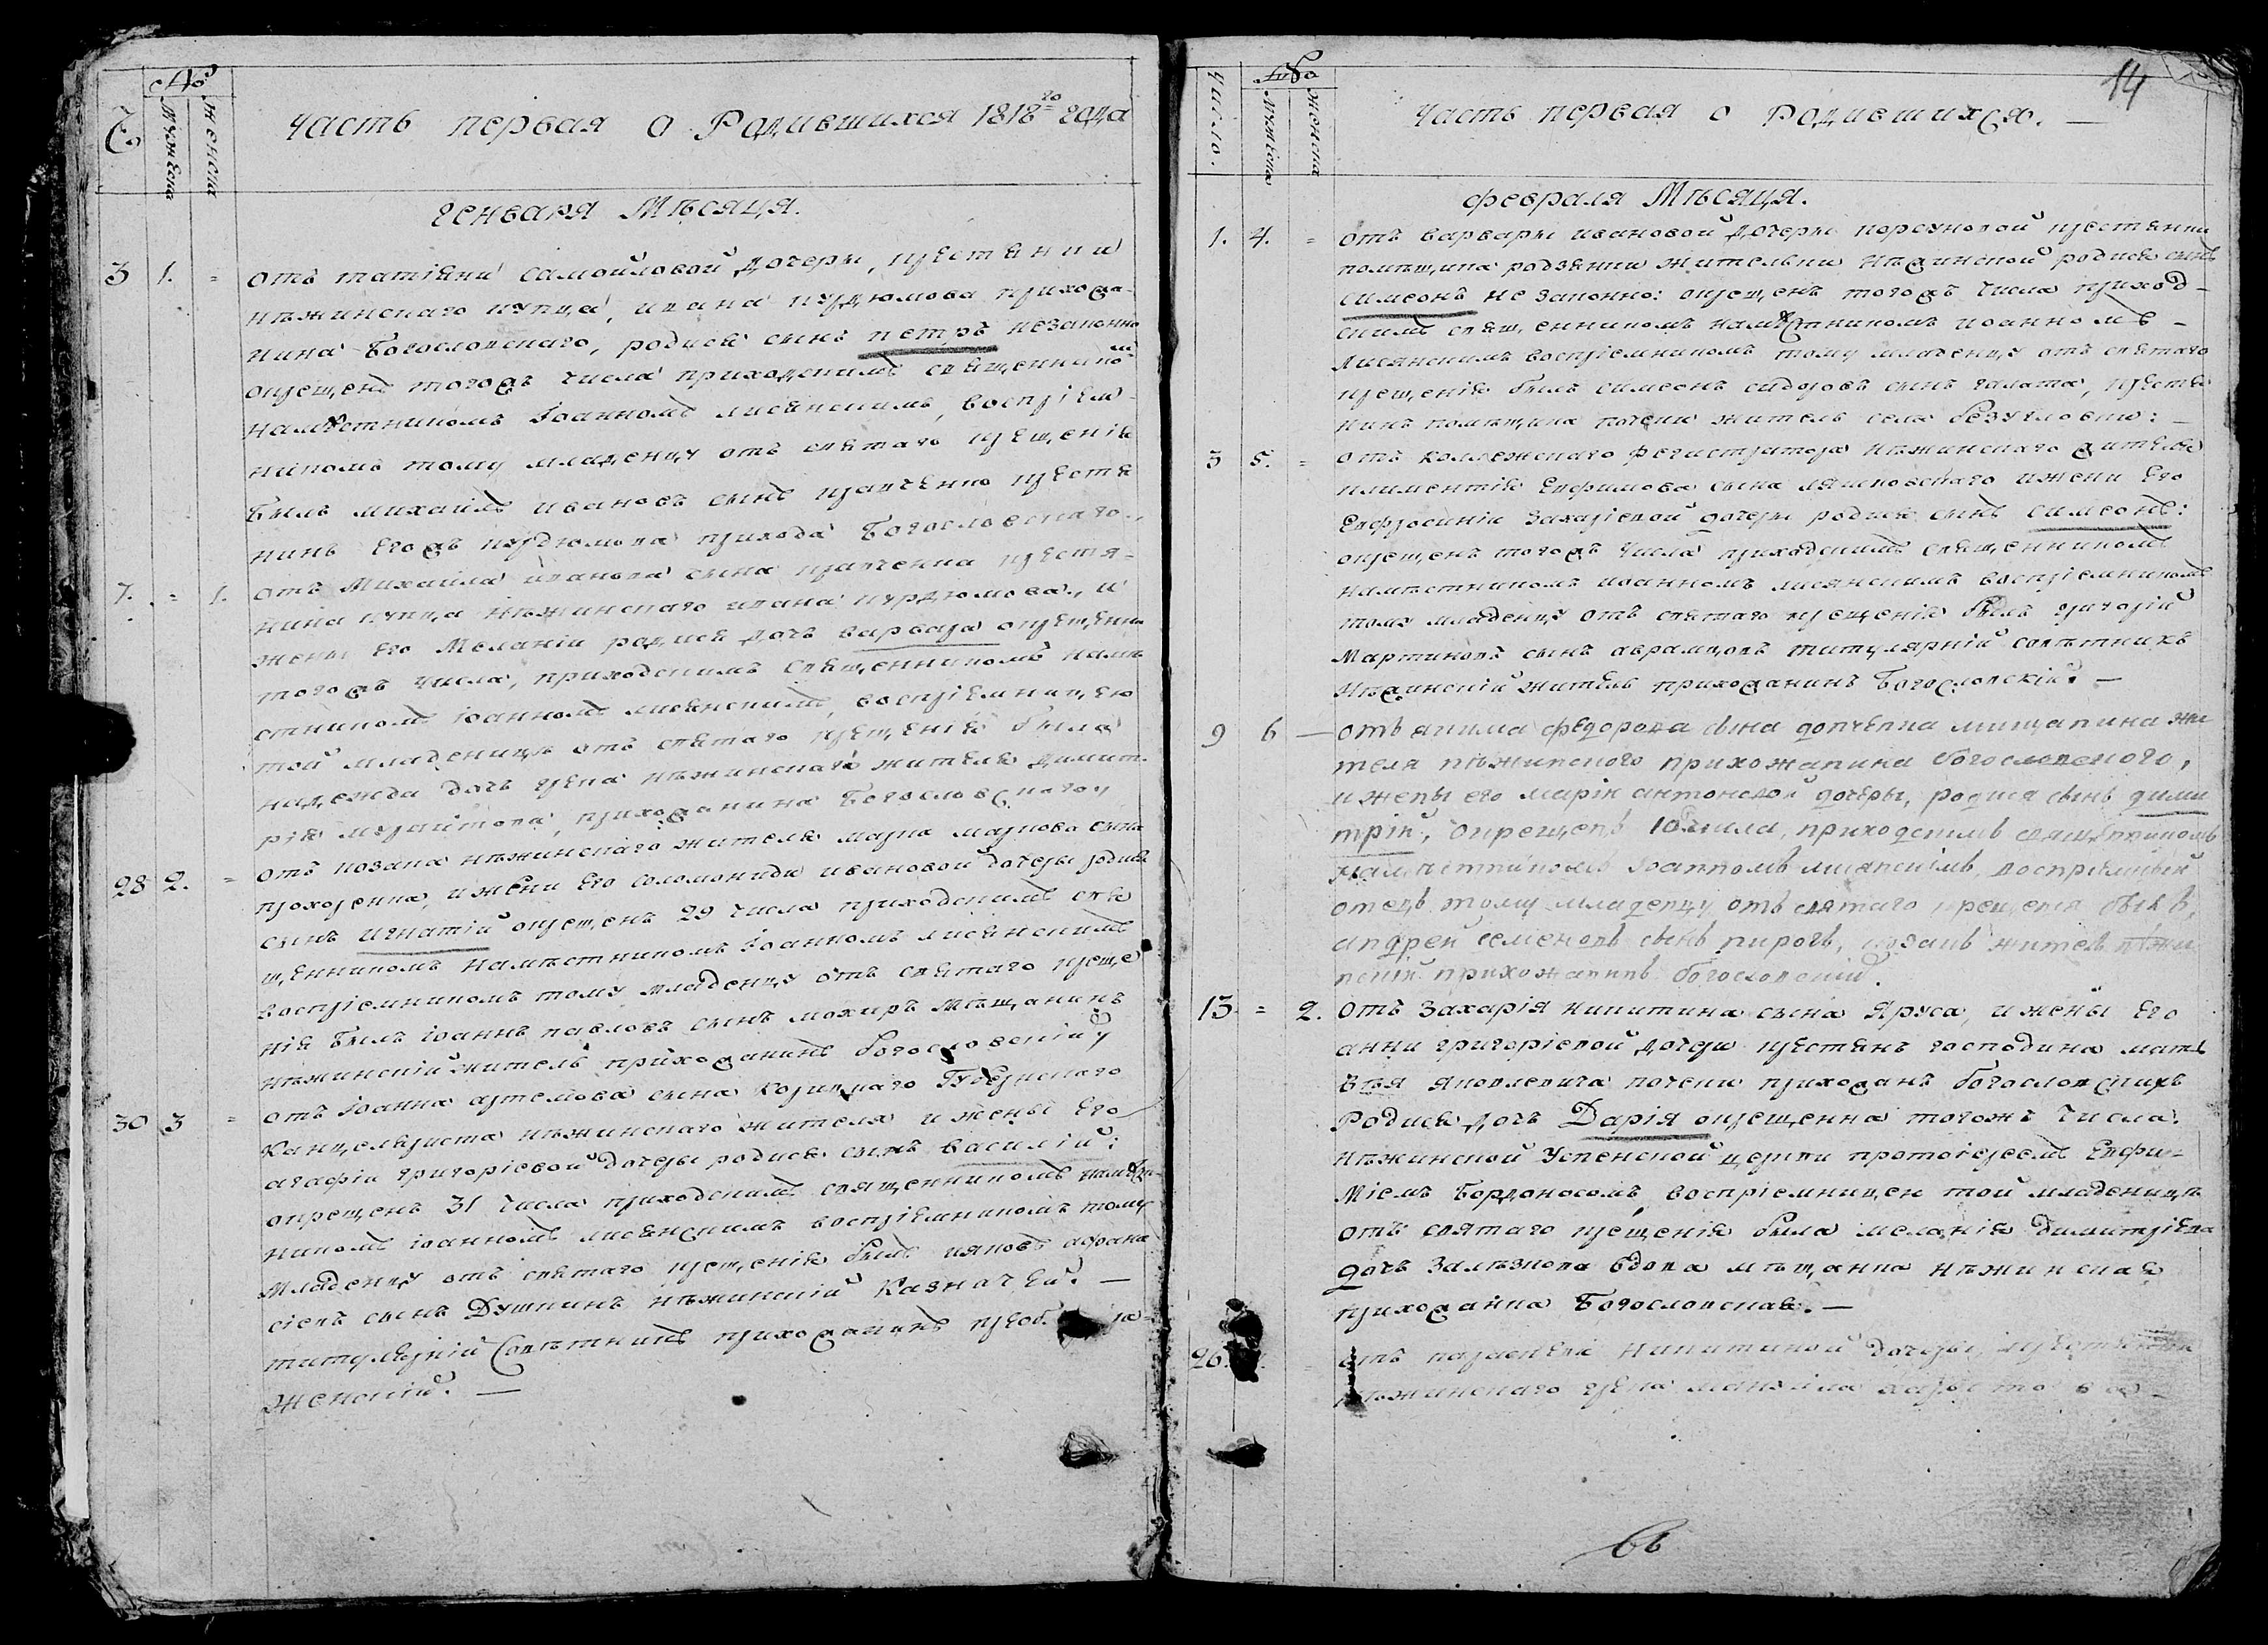 Мужеска
Женска
часть первая о Родившихся 1818го года
Генваря Мѣсяца.
3 1. = отъ татіяни самойловой дочеры, крестянки
нѣжинскаго купца, ивана курдюмова прихожа-
нина Богословскаго, родися сынъ петръ незаконно
окрещенъ тогожъ числа приходскимъ священникомъ
намѣстникомъ Іоанномъ лисянскимъ, воспріем-
никомъ тому младенцу отъ святаго крещенія
Былъ михаилъ ивановъ сынъ кравченко крестя
нинъ Егожъ курдюмова прихода Богословскаго.,
7. = 1. отъ Михаила иванова сына кравченка крестя-
нина купца нѣжинскаго ивана курдюмова, и
жены Его Меланіи родися дочь варвара окрещенна
тогожъ числа, приходскимъ священникомъ намѣ
стникомъ іоанномъ лисянскимъ, воспріемницею
той младеници отъ святаго крещенія была
надежда дочь грека нѣжинскаго жителя димит-
рія, прихожанина Богословскаго
28 2. = отъ козака нѣжинскаго жителя марка маркова сына
прохоренка, и жени Его соломониди ивановой дочеры родися
сынъ игнатій окрещенъ 29 числа приходскимъ свя
щенникомъ намѣстникомъ Іоанномъ лисянскимъ
воспріемникомъ тому младенцу отъ святаго креще
нія Былъ іоаннъ павловъ сынъ мохиръ мѣщанинъ
нѣжинскій житель прихожанинъ богословскій
30 3 = отъ Іоанна артемова сына Губернскаго
Канцеляриста нѣжинскаго жителя и жены Его
агафіи григоріевой дочеры родися сынъ василій:
окрещенъ 31 числа приходскимъ священникомъ намѣст-
никомъ іоанномъ лисянскимъ воспріемникомъ тому
младенцу отъ святаго крещенія былъ афана
сіевъ сынъ Душкинъ нѣжинскій Казначей. —
титулярній Совѣтникъ прихожанинъ
женскій. —
14
Число.
Мужеска
Женска
Часть первая о Родившихся. —
февраля Мѣсяца.
1. 4. = отъ варвары ивановой дочеры крестянки
помѣщика родзянки жителки нѣжинской родися сынъ
симеонъ незаконно: окрещенъ тогожъ числа приход-
скимъ священникомъ намѣстникомъ иоанномъ —
Лисянскимъ воспріемникомъ тому младенцу отъ святаго
крещенія былъ симеонъ сидоровъ сынъ галата, крестя
нинъ помѣщика почеки житель села безугловки: —
3 5. = отъ коллежскаго регистратора нѣжинскаго жителя
климентія Евфимова сына ижени Его
Евфросиніи Захаріевой дочеры родися сынъ симеонъ:
окрещенъ тогожъ числа приходскимъ священникомъ
намѣстникомъ иоанномъ лисянскимъ воспріемникомъ
тому младенцу отъ святаго крещенія былъ григорій
Мартиновъ сынъ аврамцовъ титулярній совѣтникъ
нѣжинскій житель прихожанинъ Богословскій. —
9 6 — отъ якима федорова сына довченка мищанина жи
теля нѣжинского прихожанина богословского,
и жены его маріи антоновой дочеры, родися сынъ дими
трій, окрещенъ 10 числа, приходскимъ священникомъ
намѣстникомъ Іоанномъ лисянскимъ, воспріемный
отецъ тому младенцу отъ святаго крещенія былъ,
андрей семеновъ сынъ пирогъ, козакъ житель нѣжи
нскій прихожанинъ богословскій.
13 = 2. отъ Захарія никитина сына Яруса, и жены Его
анни григоріевой дочеры крестянъ господина матв
вѣя яковлевича почеки прихожанъ богословскихъ
Родися дочь Дарія окрещенна тогожъ числа.
нѣжинской Успенской церкви протоіереемъ Евфи-
міемъ Бордоносомъ, воспріемницею той младеници
отъ святаго крещенія была меланія димитріева
дочь Залѣзкова вдова мѣщанка нѣжинская
прихожанка Богословская. —
26. отъ параскеви никитиной дочеры, крестянки
нѣжинскаго грека